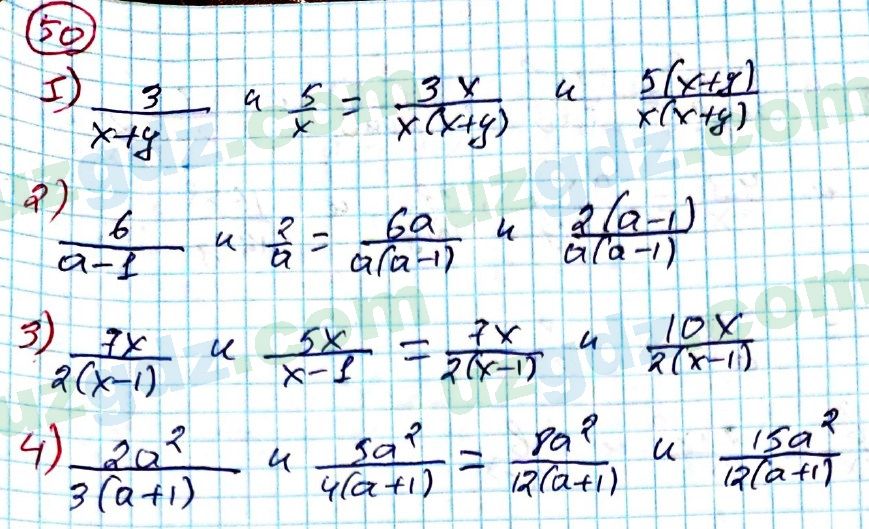 50
1) 3/(x+y) и 5/x = 3x/(x(x+y)) и 5(x+y)/(x(x+y))
2) 6/(a-1) и 2/a = 6a/(a(a-1)) и 2(a-1)/(a(a-1))
3) 7x/(2(x-1)) и 5x/(x-1) = 7x/(2(x-1)) и 10x/(2(x-1))
4) 2a²/(3(a+1)) и 5a²/(4(a+1)) = 8a²/(12(a+1)) и 15a²/(12(a+1))
uzgdz.com